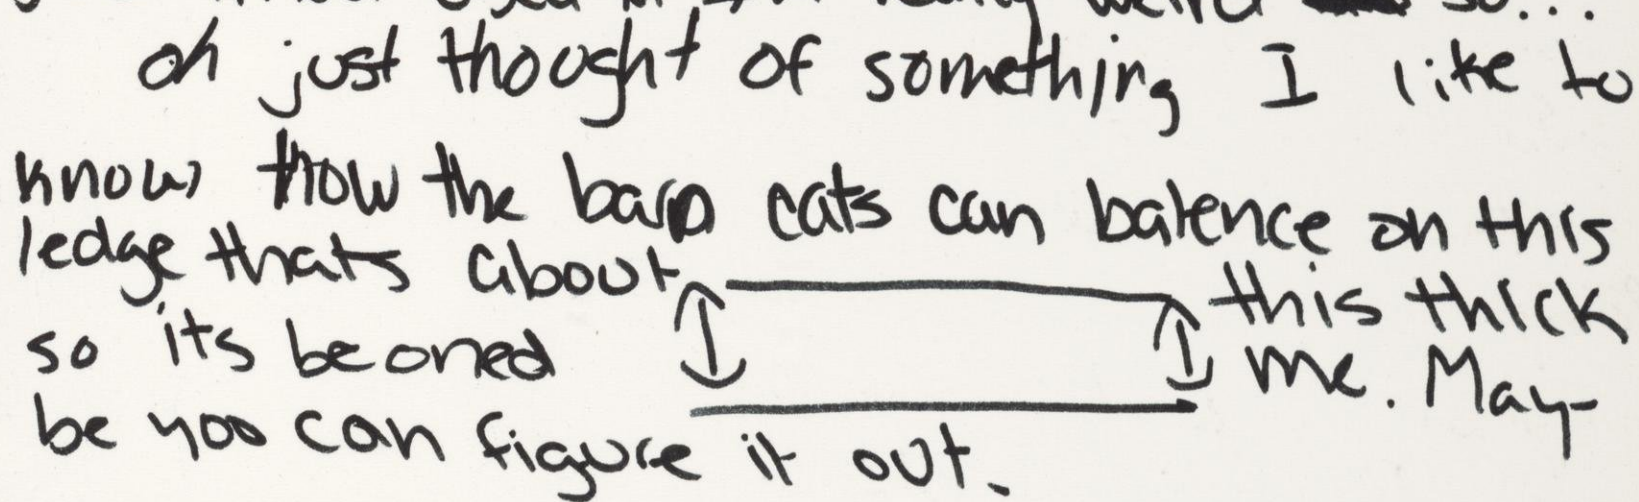 so...
oh just thought of something I like to
know how the barn cats can balence on this
ledge thats about this thick
so its beoned me. May-
be you can figure it out.